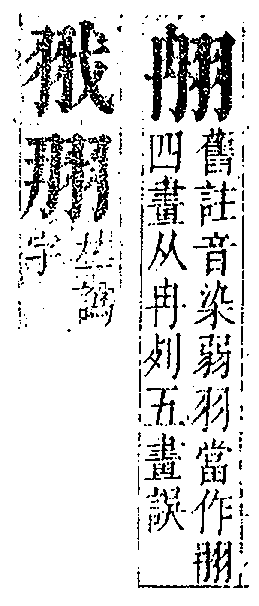 䎃
舊註音染弱羽當作
四畫从冉列五畫誤
𠀤譌
字